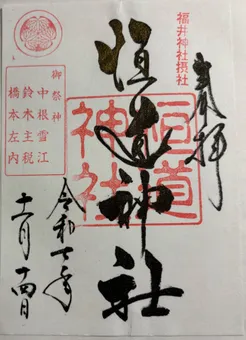 福井神社摂社
奉拝
恒道神社
恒道神社
御祭神
中根雪江
鈴木主税
橋本左内
令和七年
十一月十四日